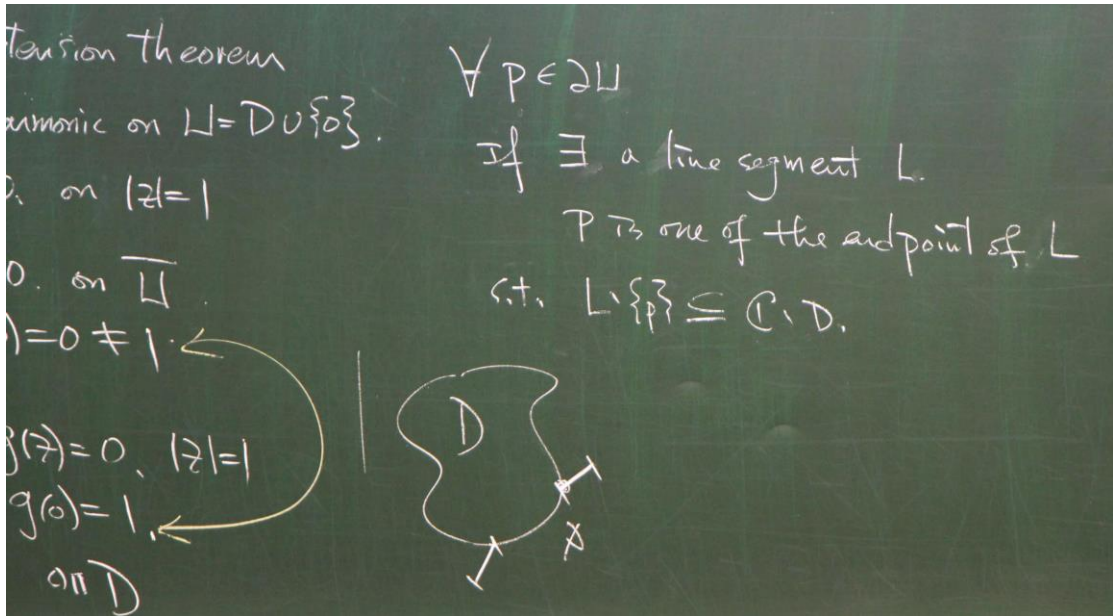 tension theorem
armonic on ⊔ = D ∪ {0}.
0. on |z| = 1
0. on \overline{⊔}.
) = 0 ≠ 1.
g(z) = 0, |z| = 1
g(0) = 1.
on D
∀ p ∈ ∂⊔
If ∃ a line segment L.
P is one of the endpoint of L
s.t. L∖{p} ⊆ ℂ∖D.
D
p